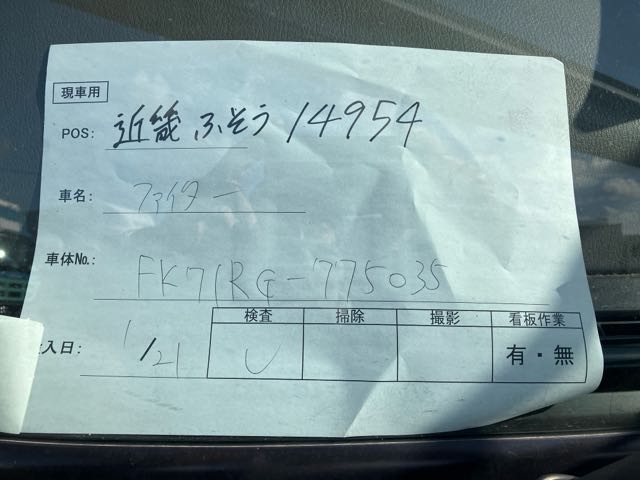 現車用
POS: 近畿ふそう 14954
車名: ファイター
車体No.: FK71RG-775035
入日: 1/21
検査 掃除 撮影 看板作業
レ 有・無